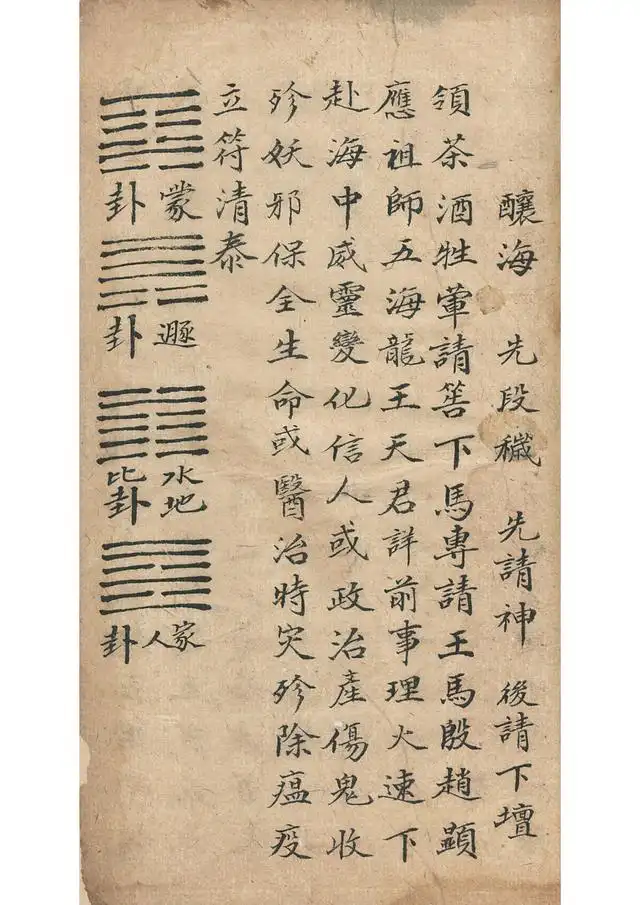 釀海 先段穢 先請神 後請下壇
領茶酒牲葷請筶下馬專請王馬殷趙顯
應祖師五海龍王天君詳前事理火速下
赴海中威靈變化信人或政治產傷鬼收
殄妖邪保全生命或醫治時灾殄除瘟疫
立符清泰
蒙卦
遯卦
水地比卦
家人卦